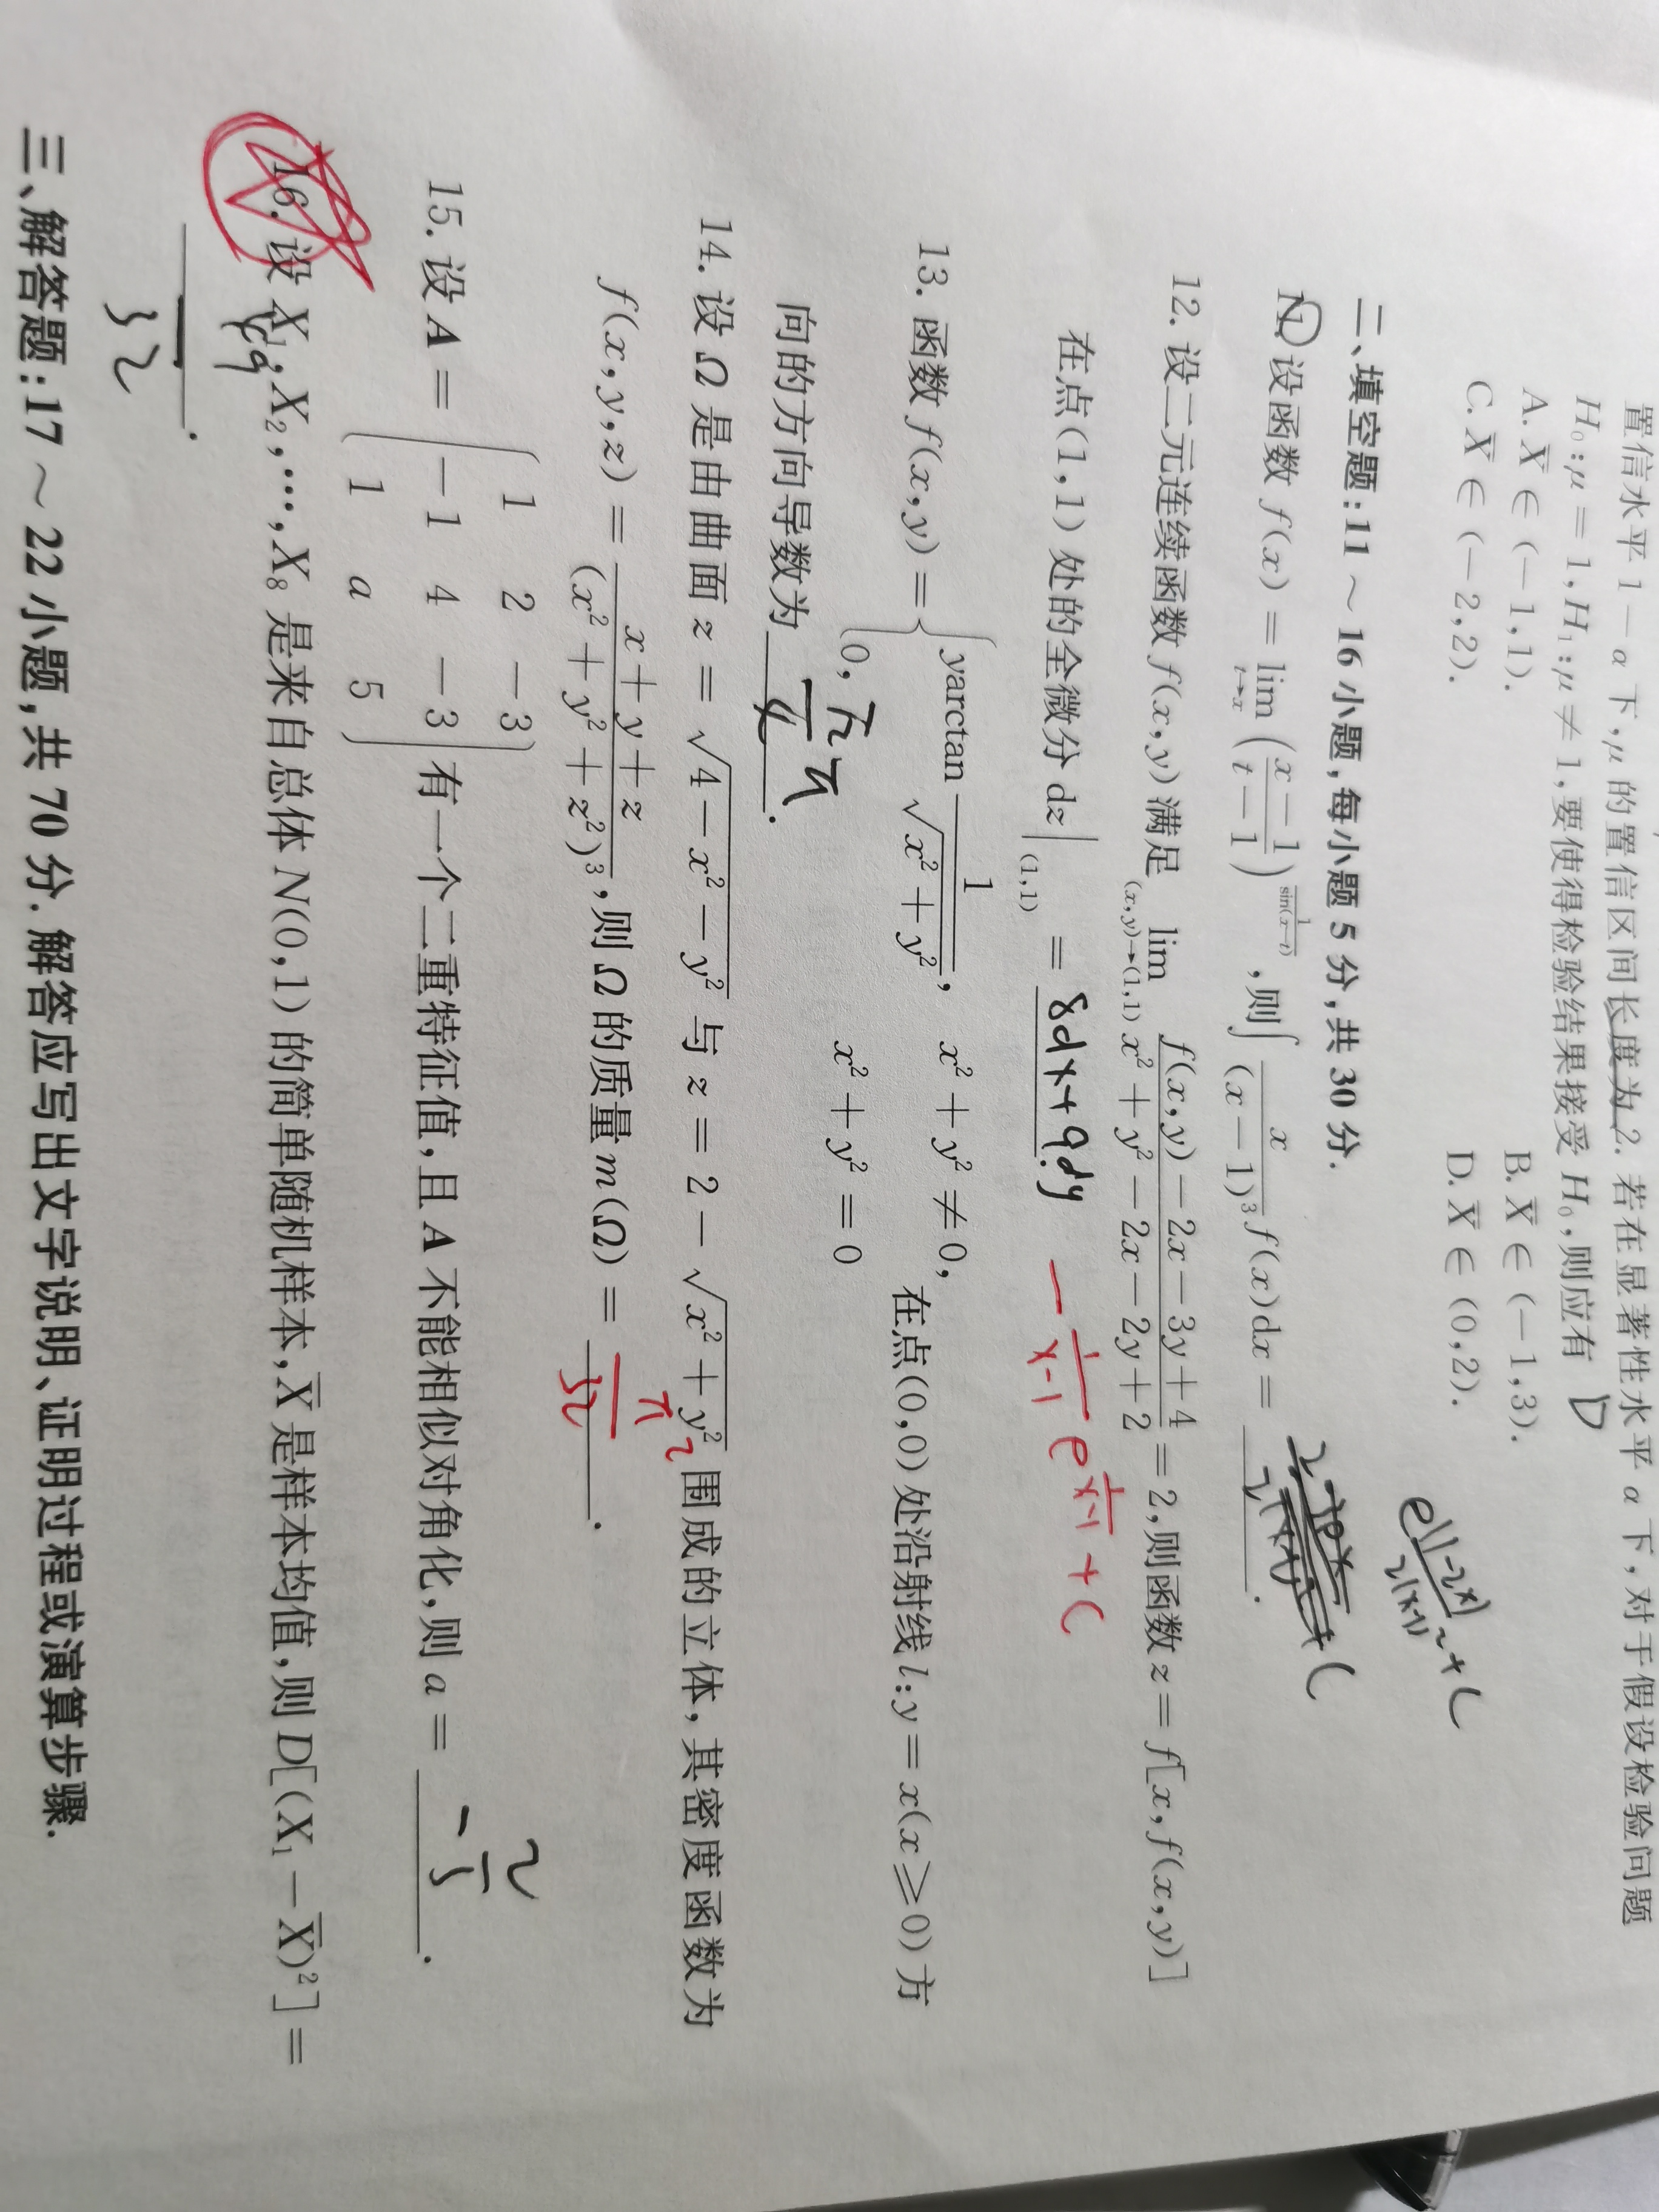 置信水平 1－α 下，μ 的置信区间长度为 2. 若在显著性水平 α 下，对于假设检验问题
H₀：μ＝1，H₁：μ≠1，要使得检验结果接受 H₀，则应有 D
A. X̄ ∈ (－1,1). B. X̄ ∈ (－1,3).
C. X̄ ∈ (－2,2). D. X̄ ∈ (0,2).
二、填空题：11～16 小题，每小题 5 分，共 30 分.
设函数 f(x)＝lim_{t→x} ((x－1)/(t－1))^{1/sin(x－t)}，则∫ x/(x－1)³ f(x)dx＝____.
－1/(x－1) e^{1/(x－1)}＋C
12. 设二元连续函数 f(x,y) 满足 lim_{(x,y)→(1,1)} (f(x,y)－2x－3y＋4)/(x²＋y²－2x－2y＋2)＝2，则函数 z＝f[x,f(x,y)]
在点 (1,1) 处的全微分 dz|_{(1,1)}＝8dx＋9dy.
13. 函数 f(x,y)＝{ yarctan 1/√(x²＋y²), x²＋y²≠0, 0, x²＋y²＝0 在点 (0,0) 处沿射线 l：y＝x(x≥0) 方
向的方向导数为 √2π/4.
14. 设 Ω 是由曲面 z＝√(4－x²－y²) 与 z＝2－√(x²＋y²) 围成的立体，其密度函数为
f(x,y,z)＝(x＋y＋z)/(x²＋y²＋z²)³，则 Ω 的质量 m(Ω)＝____.
15. 设 A＝( 1 2 －3
－1 4 －3
1 a 5 ) 有一个二重特征值，且 A 不能相似对角化，则 a＝－2/3.
16. 设 X₁，X₂，⋯，X₈ 是来自总体 N(0,1) 的简单随机样本，X̄ 是样本均值，则 D[(X₁－X̄)²]＝
49/32.
三、解答题：17～22 小题，共 70 分. 解答应写出文字说明、证明过程或演算步骤.